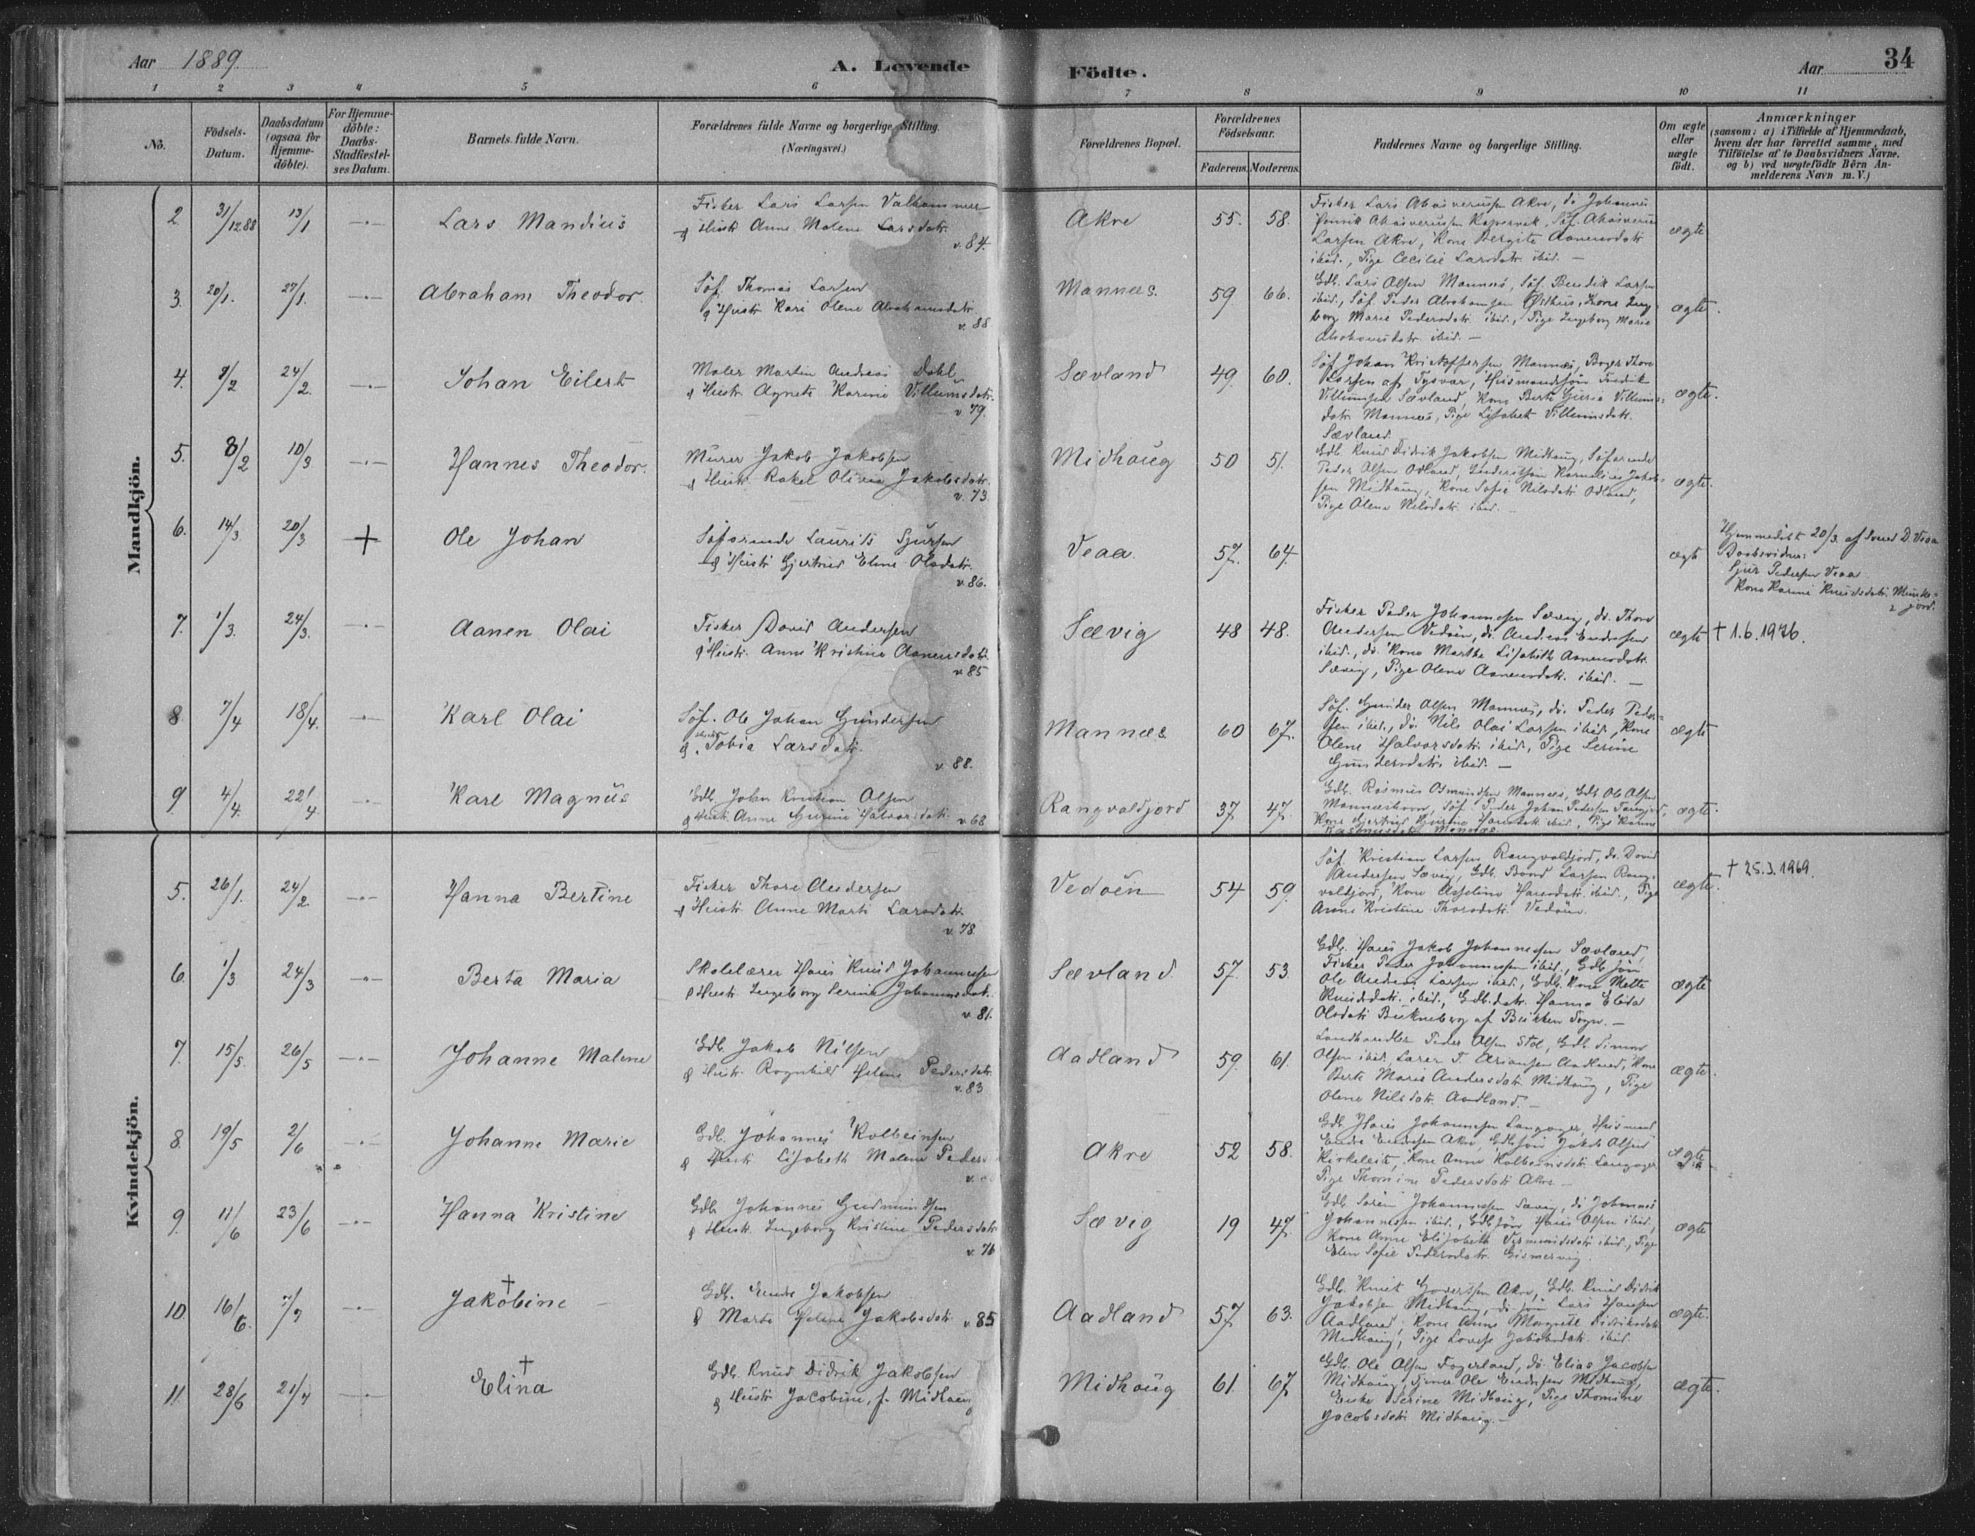 Aar 1889.
A. Levende
Födte.
Aar
34
1 2 3 4 5 6 7 8 9 10 11
No.
Födsels-Datum.
Daabsdatum (ogsaa for Hjemme-döbte).
For Hjemme-döbte: Daabs-Stadfæstel-ses Datum.
Barnets fulde Navn.
Forældrenes fulde Navne og borgerlige Stilling. (Næringsvei.)
Forældrenes Bopæl.
Forældrenes Födselsaar.
Faderens. Moderens.
Faddernes Navne og borgerlige Stilling.
Om ægte eller uægte födt.
Anmærkninger
(saasom: a) i Tilfælde af Hjemmedaab, hvem der har forrettet samme, med Tilföielse af to Daabsvidners Navne, og b) ved uægtefödte Börn An-melderens Navn m. V.)
Mandkjön.
2 31/12 88 13/1 Lars Mandius
Fisker Lars Larsen Valhammer
& Hustr. Anne Malene Larsdatr.
v. 84.
Akre 55. 58.
Larsen Akre, Kone Bergite
ibid., Pige Cecilie Larsdatr. ibid. —
ægte
3. 20/1. 27/1. Abraham Theodor.
Söf. Thomas Larsen
& Hustr. Kari Olene Abrahamsdatr.
v. 88
Mannes. 59 66.
Gdb. Lars Olsen Mannes, Söf. Bendik Larsen
ibid., Söf. Peder Abrahamsen
berg Marie Pedersdatr. ibid., Pige Ingeborg Marie
Abrahamsdatr. ibid. —
ægte.
4. 9/2 24/2. Johan Eilert
Maler Martin Andreas Dahl
& Hustr. Agnete Karine Villumsdatr.
v. 79.
Sævland 49. 60.
Söf. Johan Kristoffersen Mannes,
Larsen af Tysvær, Husmandssön Fredrik
Villumsen Sævland, Kone Berte
datr. Mannes, Pige Lisabet Villumsdatr.
Sævland.
ægte.
5. 8/2 10/3 Hannes Theodor.
Murer Jakob Jakobsen
& Hustr. Rakel Olivia Jakobsdatr.
v. 73
Midhaug 50 51.
Gdb. Knud Didrik Jakobsen Midhaug, Söfarende
Peder Olsen Odland,
sen Midhaug, Kone Sofie Nilsdatr. Odland,
Pige Olene Nilsdatr. ibid. —
ægte.
6. 14/3. 20/3 + Ole Johan
Söfarende Laurits Sjursen
& Hustr. Gjertrud Elene Olsdatr.
v. 86.
Veaa. 57. 64.
ægte
Hjemmedöbt 20/3. af
Daabsvidner:
Sjur Pedersen Veaa
Kone Karine Knudsdatr.
7. 1/3. 24/3. Aanen Olai
Fisker David Andersen
& Hustr. Anne Kristine Aanensdatr.
v. 85
Sævig 48 48.
Fisker Peder Johannesen Sævig, do. Thore
Andersen Vedöen, do. Andreas Endresen
ibid., do. Kone Marthe Lisabeth Aanensdatr.
Sævig, Pige Olene Aanensdatr. ibid. —
ægte
† 1.6.1926.
8 7/4 18/4. Karl Olai
Söf. Ole Johan Gundersen
& Tobia Larsdatr.
v. 88.
Mannes 60 67.
Söf. Gunder Olsen Mannes, do. Peder Peder-
sen ibid., do. Nils Olai Larsen ibid., Kone
Olene Halvorsdatr. ibid., Pige Serine
Gundersdatr. ibid. —
ægte
9 4/4. 22/4 Karl Magnus
Gdb. John Kristian Olsen
& Hustr. Anne Gurine Halvorsdatr. v. 68
Rangvaldjord 37 47.
Gdb. Rasmus Osmundsen Mannes, Gdb. Ole Olsen
Rasmusdatr. Mannes
ægte.
Kvindekjön.
5. 26/1. 24/2 Hanna Bertine
Fisker Thore Andersen
& Hustr. Anne Marti Larsdatr.
v. 78.
Vedöen 54 59.
Söf. Kristian Larsen Rangvaldjord, do. David
Andersen Sævig, Gdb. Larsen Rang-
valdjord, Kone Asseline Hansdatr. ibid., Pige
Anne Kristine Thorsdatr. Vedöen.
ægte.
† 25.3.1969.
6. 1/3 24/3 Berta Maria
Skolelærer Hans Knud Johannesen
& Hustr. Ingeborg Serine Johannesdatr.
v. 81.
Sævland. 57. 53
Gdb. Hans Jakob Johannesen Sævland,
Fisker Peder Johannesen ibid., Gdb. sön
Ole Andreas Larsen ibid., Gdb. Kone Mette
Knudsdatr. ibid., Gdb. datr. Hanna Elida
Olsdatr. af Bukken Sogn. —
ægte
7. 15/5. 26/5 Johanne Malene
Gdb. Jakob Nilsen
& Hustr. Ragnhild Helene Pedersdatr.
v. 83
Aadland 59. 61.
Landhandler Peder Olsen Stol, Gdb. Simon
Olsen ibid. Lærer T. Aadland, Kone
Berte Marie Andersdatr. Midhaug, Pige
Olene Nilsdatr. Aadland. —
ægte.
8 19/5 2/6 Johanne Marie
Gdb. Johannes Kolbeinsen
& Hustr. Lisabeth Malene Peders
Akre 52 58.
Gdb. Hans Johannesen Langager, Husmand
Endre Endresen Akre, Gdb. sön Jakob Olsen
Kirkeleit, Kone Anne Kolbeinsdatr. Langager
Pige Thomine Pedersdatr. Akre —
ægte
9. 11/6 23/6 Hanna Kristine
Gdb. Johannes Gudmundsen
& Hustr. Ingeborg Kristine Pedersdatr.
v. 76
Sævig 19 47.
Gdb. Sören Johannesen Sævig, do. Johannes
Johannesen ibid., Gdb. sön Hans Olsen ibid.,
Kone Anne Elisabeth ibid., Pige
Elen Sofie Pedersdatr. Gismervig.
ægte
10 16/6. 7/7 Jakobine †
Gdb. Endre Jakobsen
& Marta Helene Jakobsdatr. v. 85
Aadland 57 63.
Gdb. Knut Akre, Gdb. Knud Didrik
Jakobsen Midhaug, do. sön Lars Hansen
Aadland, Kone Anne Margrete Didriksdatr.
Midhaug, Pige Lovise Jakobsdatr. ibid.
ægte.
11 28/6 21/7 Elina †
Gdb. Knud Didrik Jakobsen
& Hustr. Jacobine, f. Midhaug
Midhaug 61. 67
Gdb. Ole Olsen Fagerland, do. Elias Jacobsen
Midhaug, Ole Endresen Midhaug,
Enke Serine Midhaug, Pige Thomine
Jacobsdatr. Midhaug. —
ægte.